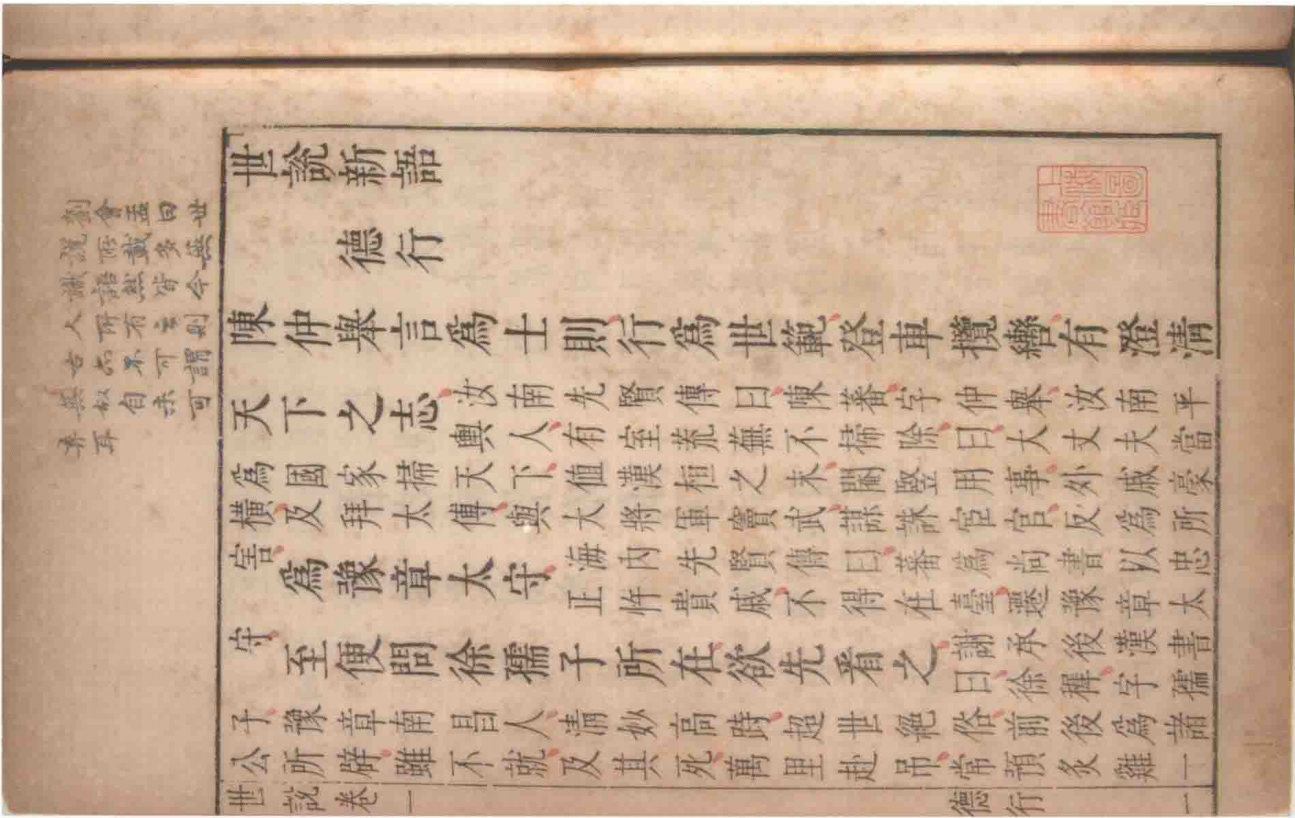 世說新語
德行
陳仲舉言爲士則行爲世範登車攬轡有澄清
天下之志
汝南先賢傳曰陳蕃字仲舉汝南平
輿人有室荒蕪不掃除曰大丈夫當
爲國家掃天下值漢桓之末閹豎用事外戚豪
橫及拜太傅與大將軍竇武謀誅宦官反爲所
害
爲豫章太守
海內先賢傳曰蕃爲尚書以忠
正忤貴戚不得在臺遷豫章太
守
至便問徐孺子所在欲先看之
謝承後漢書
曰徐穉字孺
子豫章南昌人清妙高跱超世絕俗前後爲諸
公所辟雖不就及其死萬里赴吊常預炙雞一
世說卷一
德行
一
劉會孟曰世
說所戴多無
語然皆今
人所有云則
古亦不可謂
無故自未可
棄耳
上海圖書館藏